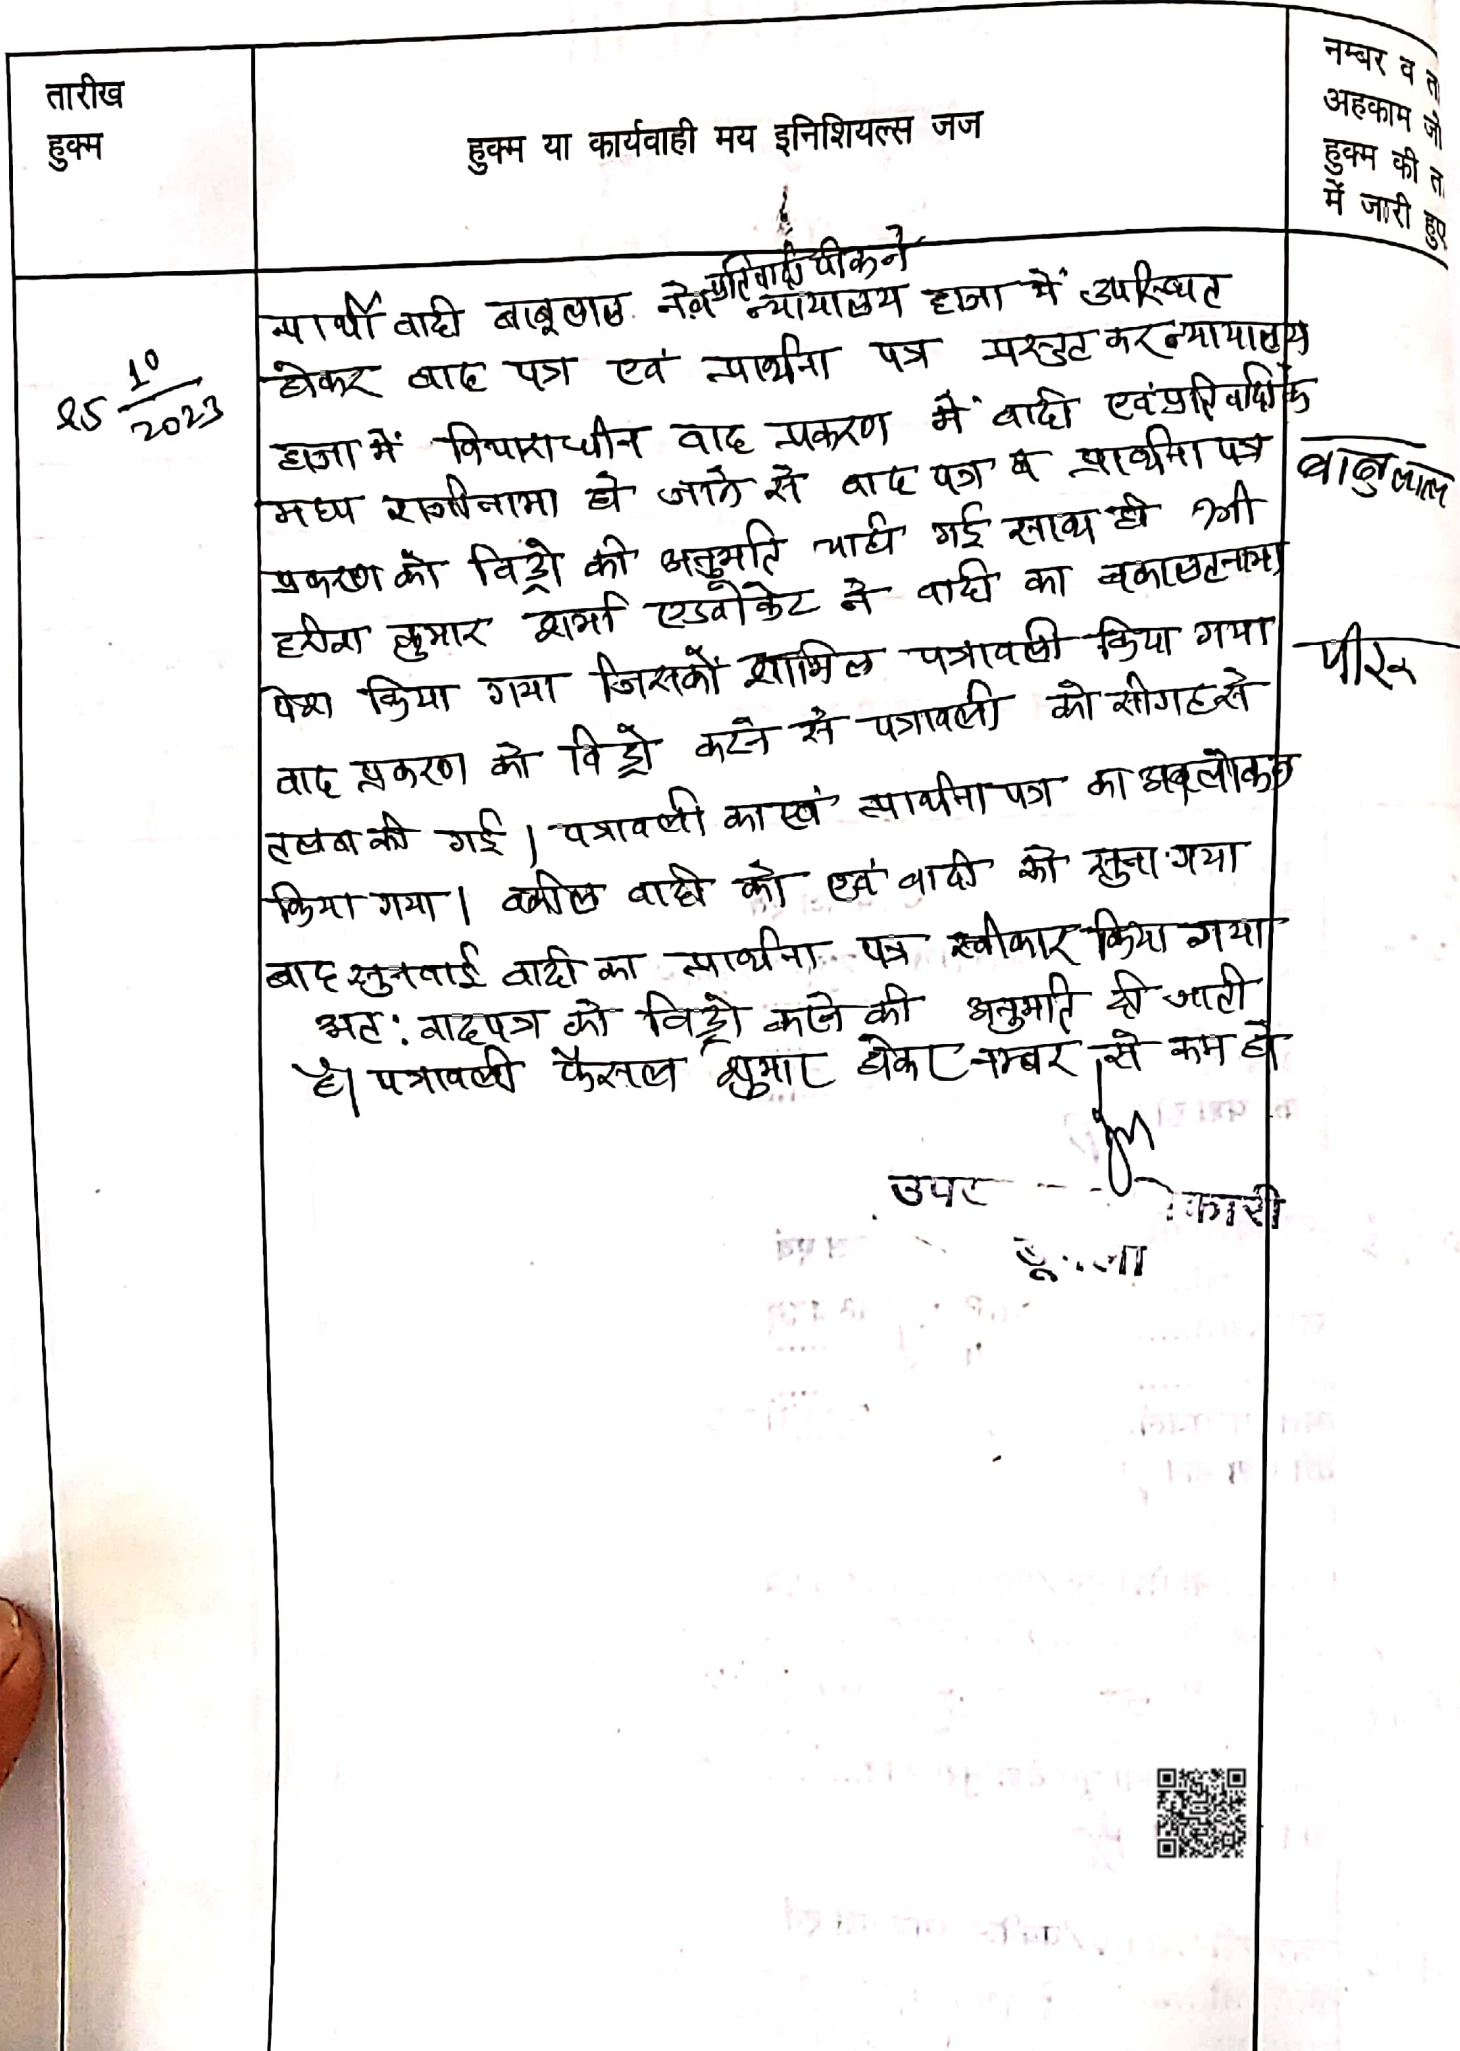 तारीख
हुक्म
हुक्म या कार्यवाही मय इनिशियल्स जज
नम्बर व ता
अहकाम जो
हुक्म की ता
में जारी हुए
25 10/2023
प्रतिवादी पीरूने
प्रार्थी वादी बाबूलाल न्यायालय हाजा में उपस्थित
होकर वाद पत्र एवं प्रार्थना पत्र प्रस्तुत कर न्यायालय
हाजा में विचाराधीन वाद प्रकरण में वादी एवं प्रतिवादी के
मध्य राजीनामा हो जाने से वाद पत्र व प्रार्थना पत्र
प्रकरण को विड्रो की अनुमति चाही गई साथ ही श्री
कुमार शर्मा एडवोकेट ने वादी का वकालतनामा
पेश किया गया जिसको शामिल पत्रावली किया गया
वाद प्रकरण को विड्रो करने से पत्रावली को सीगह से
तलब की गई। पत्रावली का एवं प्रार्थना पत्र का अवलोकन
किया गया। वकील वादी को एवं वादी को सुना गया
बाद सुनवाई वादी का प्रार्थना पत्र स्वीकार किया गया
अत: वादपत्र को विड्रो करने की अनुमति दी जाती
है। पत्रावली फैसल शुमार होकर नम्बर से कम हो
बाबुलाल
पीरू